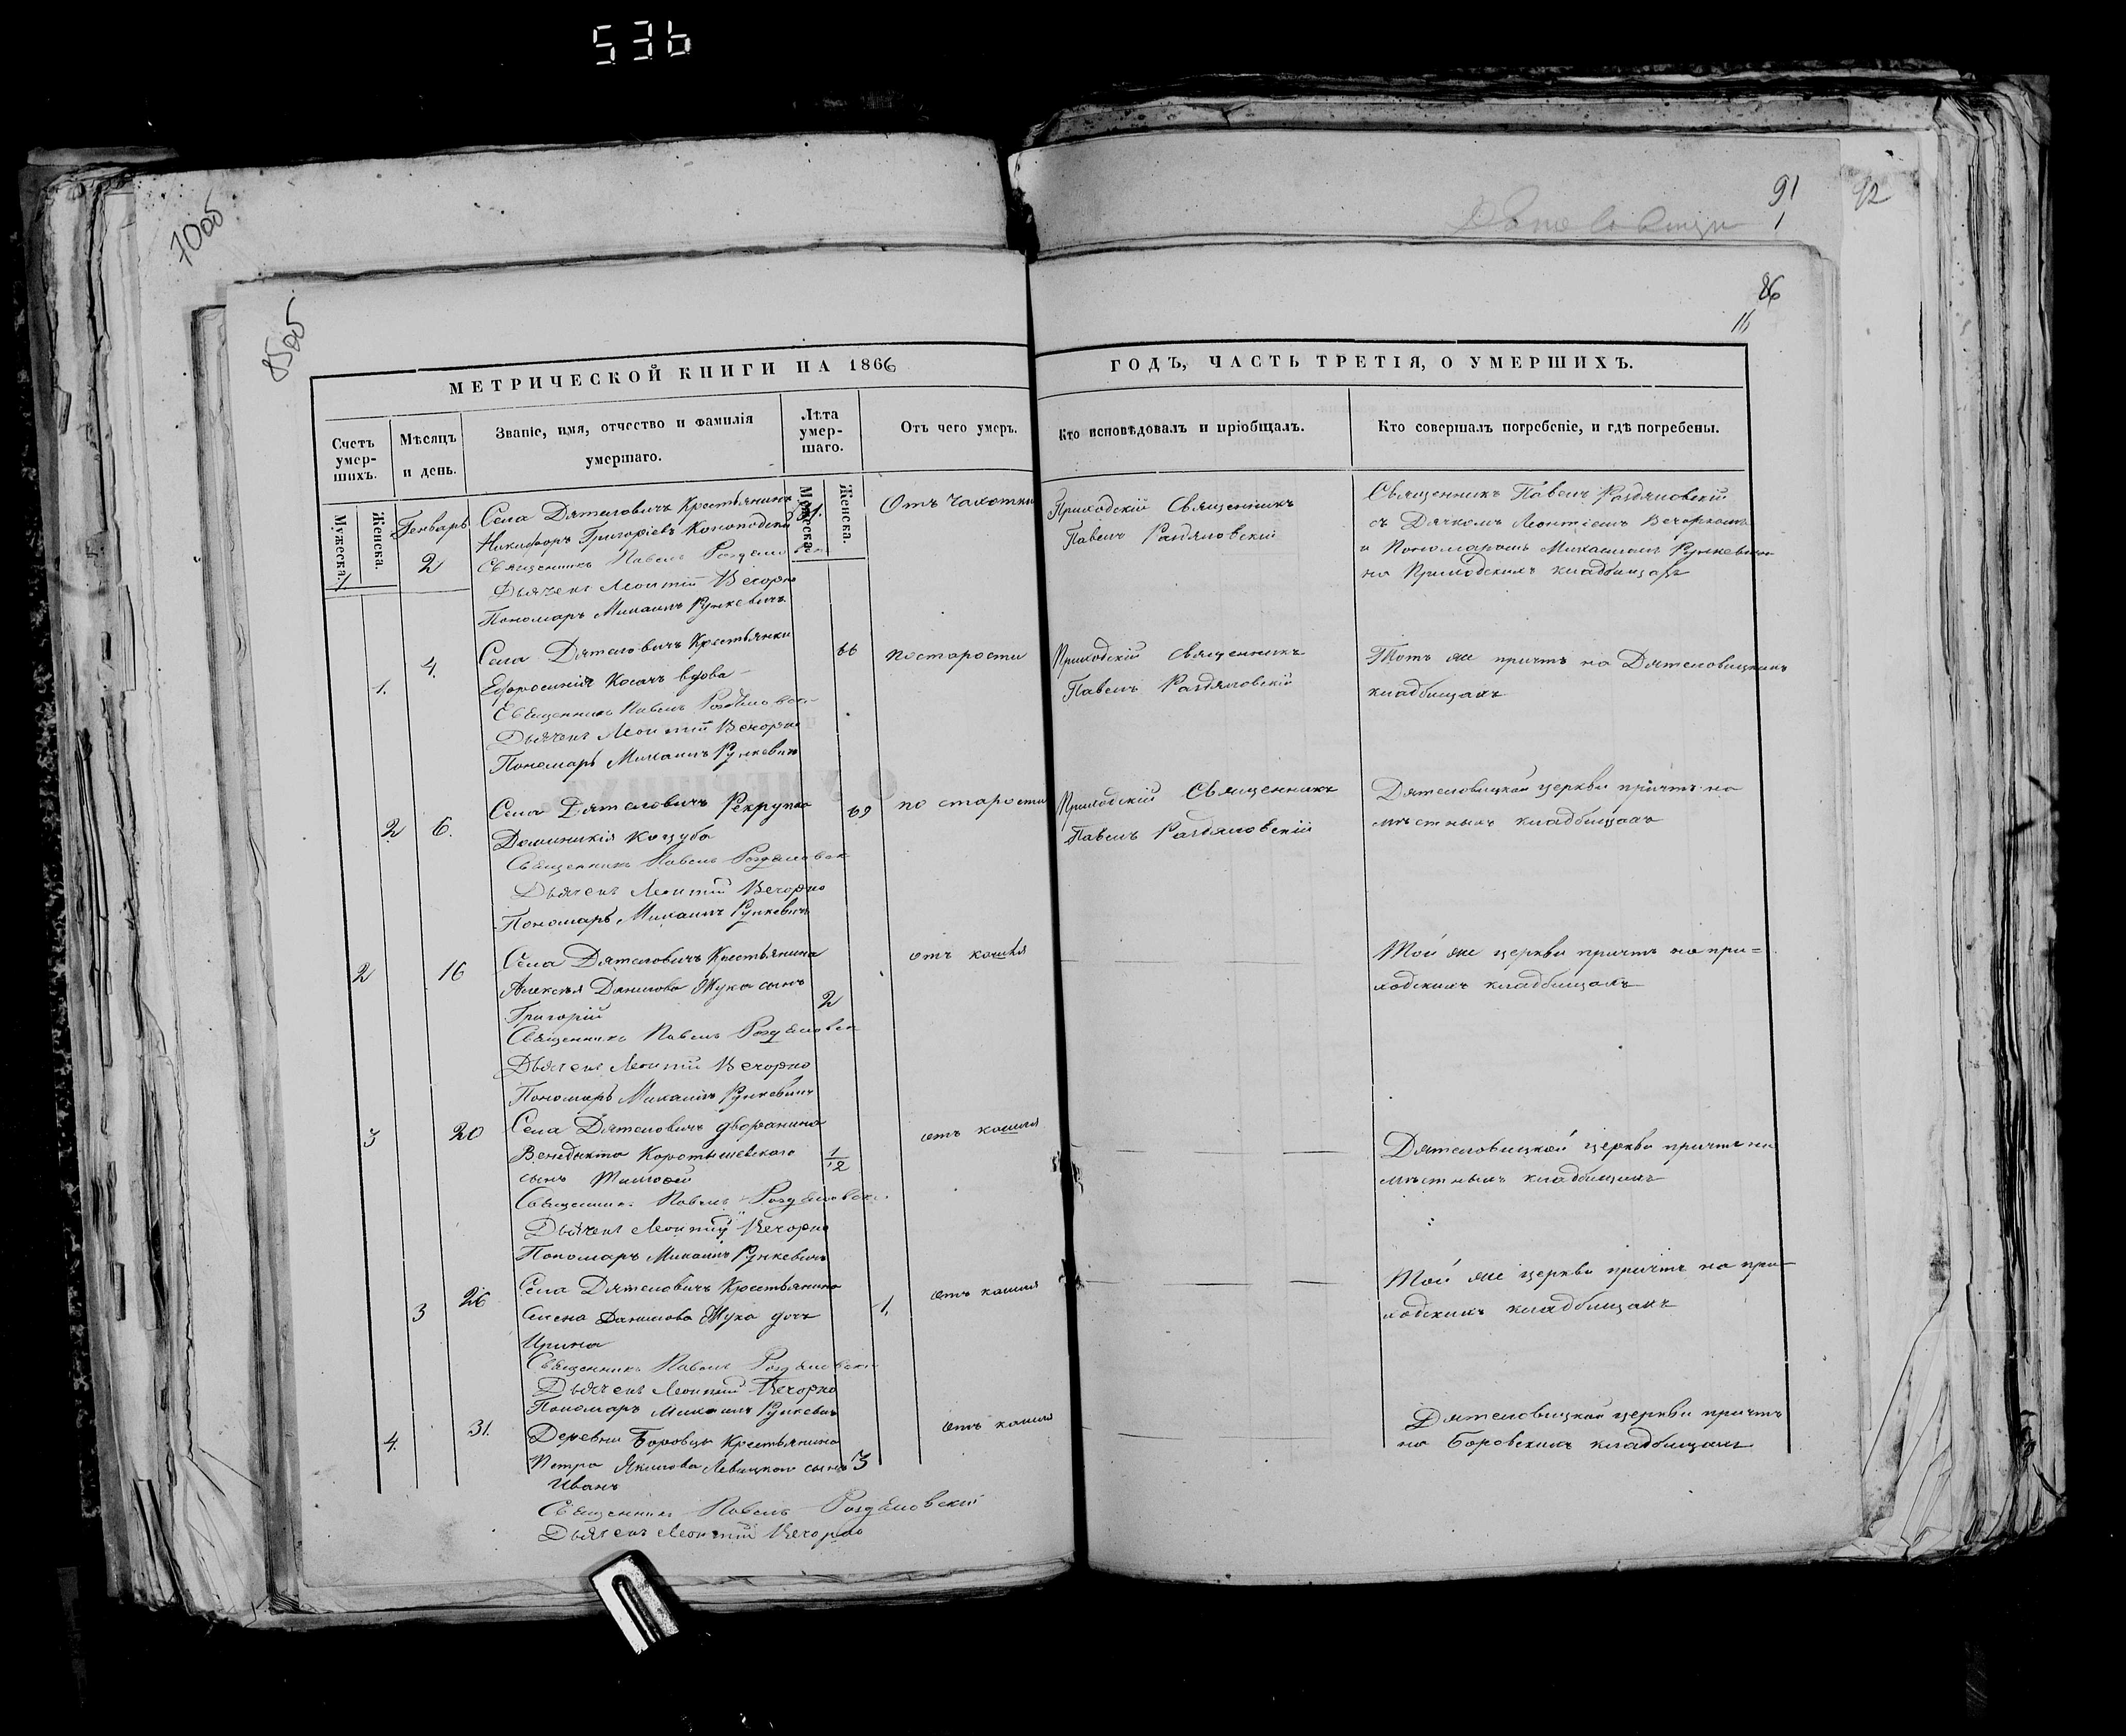 536
70об
91
92
1
85об
86
11
МЕТРИЧЕСКОЙ КНИГИ НА 1866
ГОДЪ, ЧАСТЬ ТРЕТІЯ, О УМЕРШИХЪ.
Счетъ умер-шихъ.
Мѣсяцъ и день.
Званіе, имя, отчество и фамилія умершаго.
Лѣта умер-шаго.
Отъ чего умеръ.
Кто исповѣдовалъ и пріобщалъ.
Кто совершалъ погребеніе, и гдѣ погребены.
Мужеска.
Женска.
Мужеска.
Женска.
1.
Генварь
2
Села Дятеловичъ Крестьянинъ
Никифоръ Григоріевъ
Священникъ Павелъ
Дьячекъ Леонтій Вечорко
Пономарь Михаилъ Рункевичъ
Отъ чахотки
Приходскій Священникъ
Павелъ Раздяловскій
Священникъ Павелъ Раздяловскій
съ Дячкомъ Леонтіемъ Вечоркомъ
и Пономаромъ Михаиломъ Рункевичемъ
на Приходскихъ кладбищахъ
1.
4.
Села Дятеловичъ Крестьянки
Ефросинія Косачъ вдова
Священникъ Павелъ
Дьячекъ Леонтій Вечорко
Пономарь Михаилъ Рункевичъ
66
по старости
Приходскій Священникъ
Павелъ Раздяловскій
Тотъ же причтъ на Дятеловицкихъ
кладбищахъ
2
6.
Села Дятеловичъ Рекрутка
Доминикія Коцуба
Священникъ Павелъ
Дьячекъ Леонтій Вечорко
Пономарь Михаилъ Рункевичъ
69
по старости
Приходскій Священникъ
Павелъ Раздяловскій
Дятеловицкой церкви причтъ на
мѣстныхъ кладбищахъ
2
16
Села Дятеловичъ Крестьянина
Алексѣя Данилова Жука сынъ
Григорій
Священникъ Павелъ
Дьячекъ Леонтій Вечорко
Пономарь Михаилъ Рункевичъ
2
отъ кашля
Той же церкви причтъ на при=
ходскихъ кладбищахъ
3
20
Села Дятеловичъ дворянина
Венедикта Коротышевскаго
сынъ
Священникъ Павелъ
Дьячекъ Леонтій Вечорко
Пономарь Михаилъ Рункевичъ
1/2
отъ кашля
Дятеловицкой церкви причтъ на
мѣстныхъ кладбищахъ
3
26
Села Дятеловичъ Крестьянина
Семена Данилова Жука дочь
Ирина
Священникъ Павелъ
Дьячекъ Леонтій Вечорко
Пономарь Михаилъ Рункевичъ
1.
отъ кашля
Той же церкви причтъ на при-
ходскихъ кладбищахъ
4.
31.
Деревни Боровцы Крестьянина
Петра Якимова Левицкаго сынъ
Иванъ
Священникъ Павелъ Роздѣловскій
Дьячекъ Леонтій Вечорко
3
отъ кашля
Дятеловицкой церкви причтъ
на Боровскихъ кладбищахъ